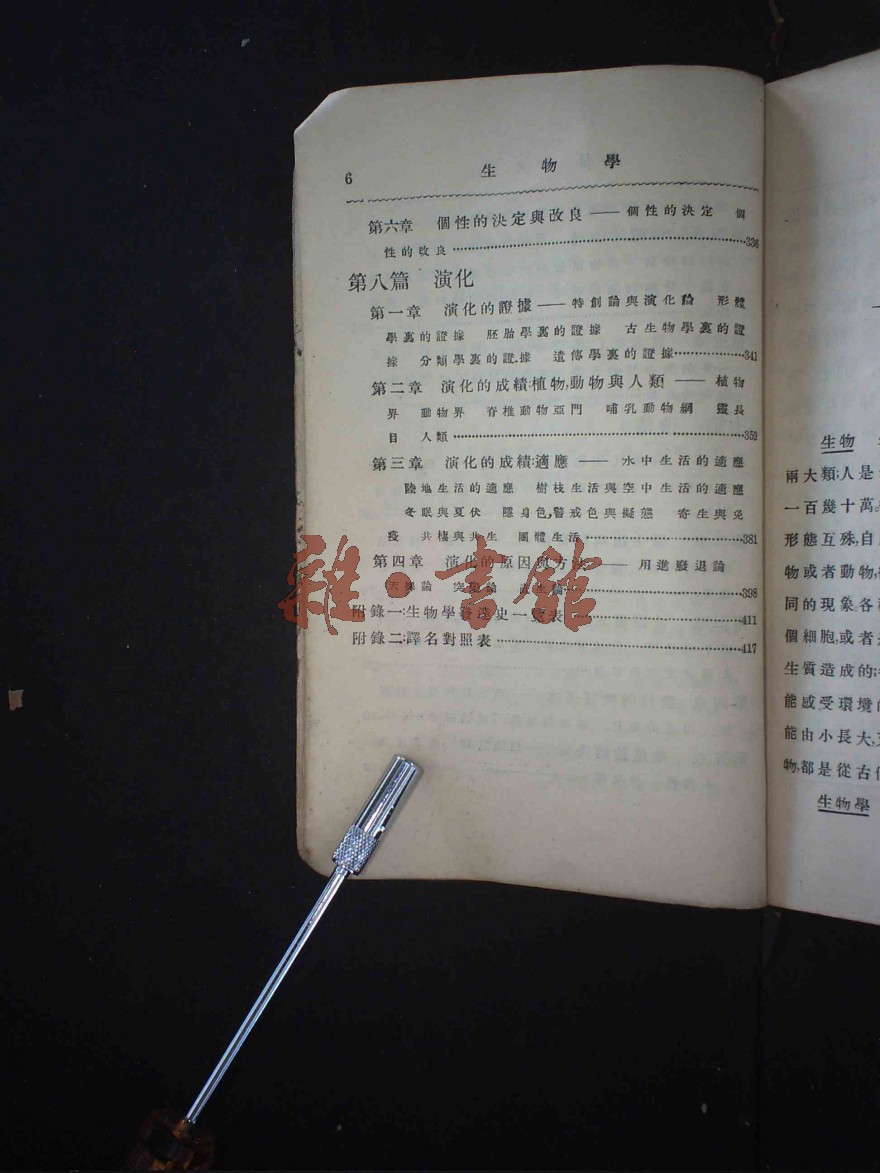 6 生物學
第六章 個性的決定與改良——個性的決定 個
性的改良……336
第八篇 演化
第一章 演化的證據——特創論與演化論 形體
學裏的證據 胚胎學裏的證據 古生物學裏的證
據 分類學裏的證據 遺傳學裏的證據……341
第二章 演化的成績:植物,動物與人類——植物
界 動物界 脊椎動物亞門 哺乳動物綱 靈長
目 人類……359
第三章 演化的成績:適應——水中生活的適應
陸地生活的適應 樹枝生活與空中生活的適應
冬眠與夏伏 隱身色,警戒色與擬態 寄生與免
疫 共棲與共生 團體生活……381
第四章 演化的原因與方法——用進廢退論
天擇論 突變論 直生論……398
附錄一:生物學發達史一覽表……411
附錄二:譯名對照表……417
雜·書館
生物
兩大類;人是
一百幾十萬
形態互殊,自
物或者動物,
同的現象.各
個細胞,或者
生質造成的;
能感受環境的
能由小長大,
物,都是從古
生物學